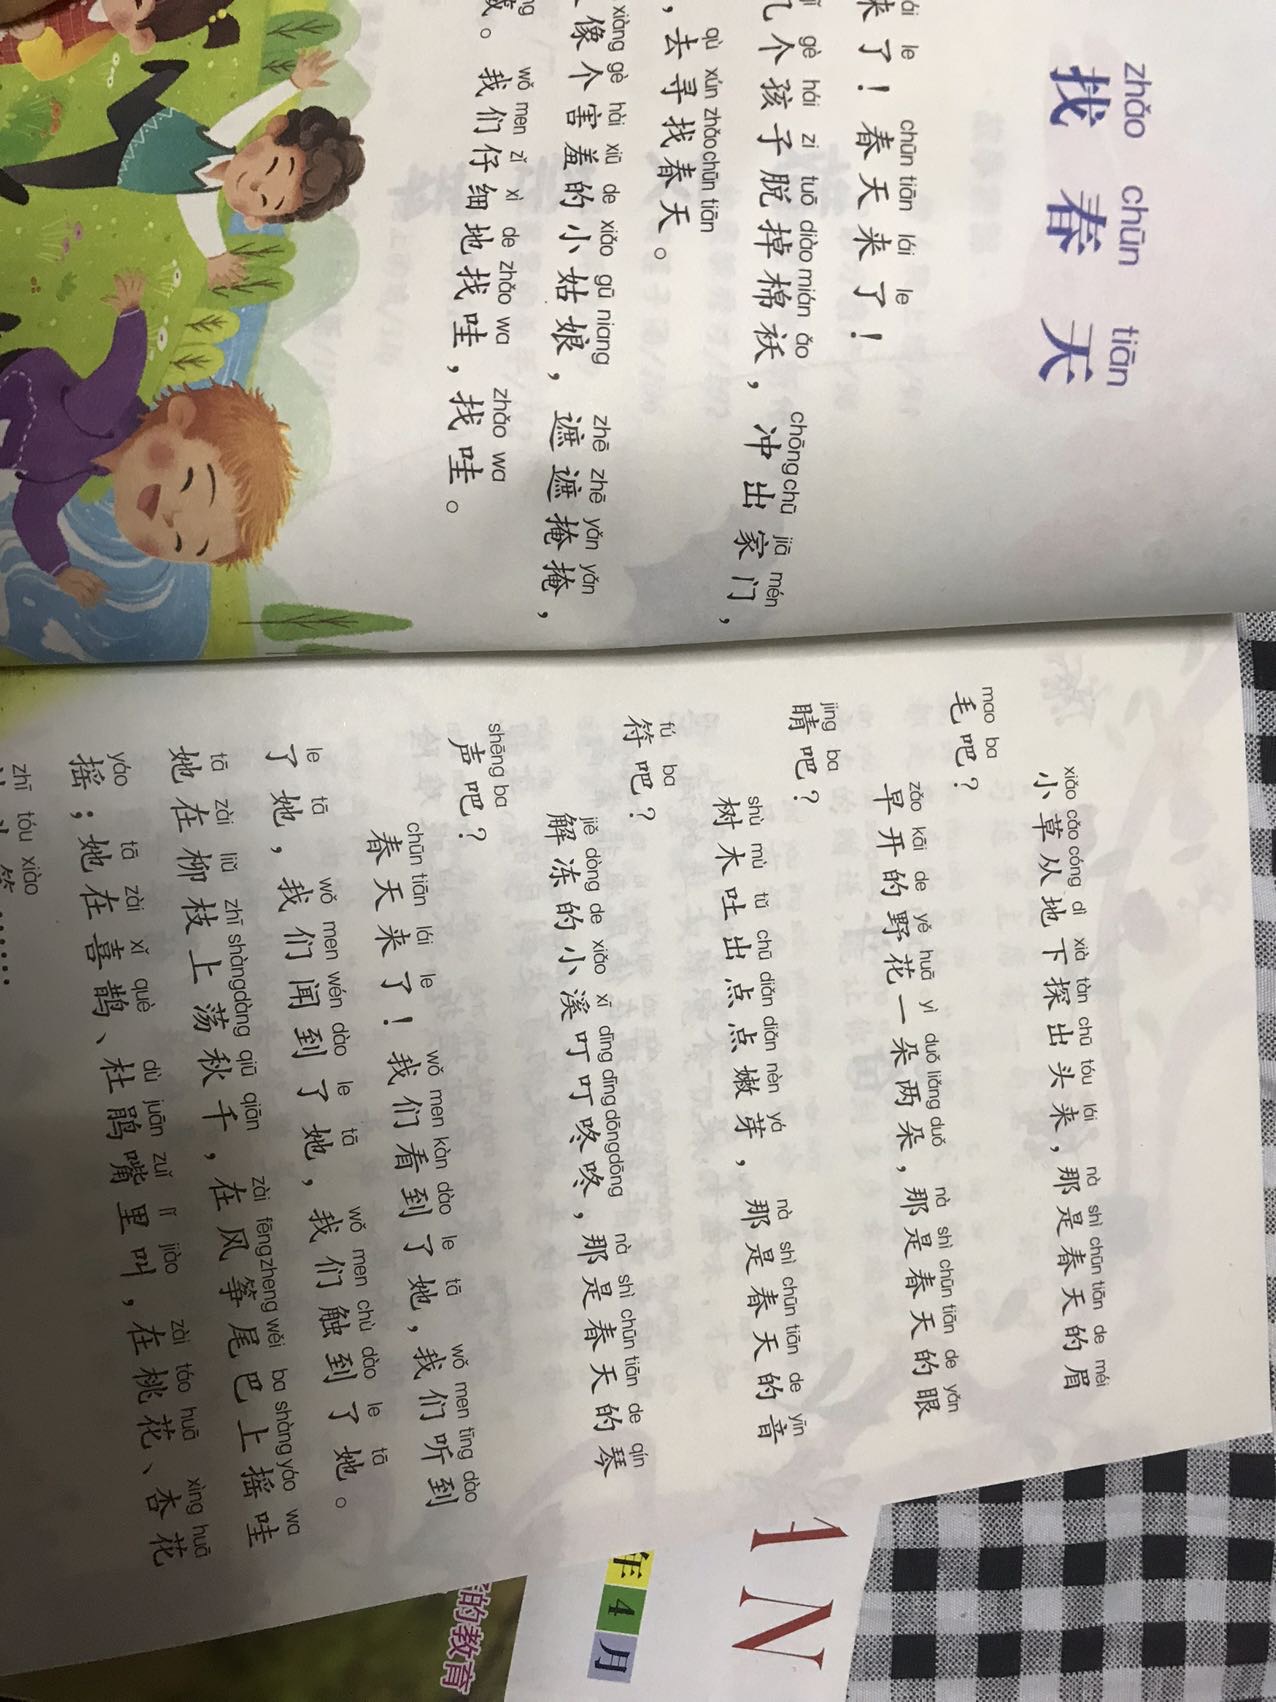 zhǎo chūn tiān
找春天
lái le chūn tiān lái le
来了！春天来了！
gè hái zi tuō diào mián ǎo chōng chū jiā mén
几个孩子脱掉棉袄，冲出家门，
qù xún zhǎo chūn tiān
，去寻找春天。
xiàng gè hài xiū de xiǎo gū niang zhē zhē yǎn yǎn
像个害羞的小姑娘，遮遮掩掩，
wǒ men zǐ xì de zhǎo wa zhǎo wa
藏。我们仔细地找哇，找哇。
xiǎo cǎo cóng dì xià tàn chū tóu lái nà shì chūn tiān de méi
小草从地下探出头来，那是春天的眉
mao ba
毛吧？
zǎo kāi de yě huā yì duǒ liǎng duǒ nà shì chūn tiān de yǎn
早开的野花一朵两朵，那是春天的眼
jing ba
睛吧？
shù mù tǔ chū diǎn diǎn nèn yá nà shì chūn tiān de yīn
树木吐出点点嫩芽，那是春天的音
fú ba
符吧？
jiě dòng de xiǎo xī dīng dīng dōng dōng nà shì chūn tiān de qín
解冻的小溪叮叮咚咚，那是春天的琴
shēng ba
声吧？
chūn tiān lái le wǒ men kàn dào le tā wǒ men tīng dào
春天来了！我们看到了她，我们听到
le tā wǒ men wén dào le tā wǒ men chù dào le tā
了她，我们闻到了她，我们触到了她。
tā zài liǔ zhī shàng dàng qiū qiān zài fēng zheng wěi ba shàng yáo wa
她在柳枝上荡秋千，在风筝尾巴上摇哇
yáo tā zài xǐ què dù juān zuǐ lǐ jiào zài táo huā xìng huā
摇；她在喜鹊、杜鹃嘴里叫，在桃花、杏花
zhī tóu xiào
1N
年4月
的教育